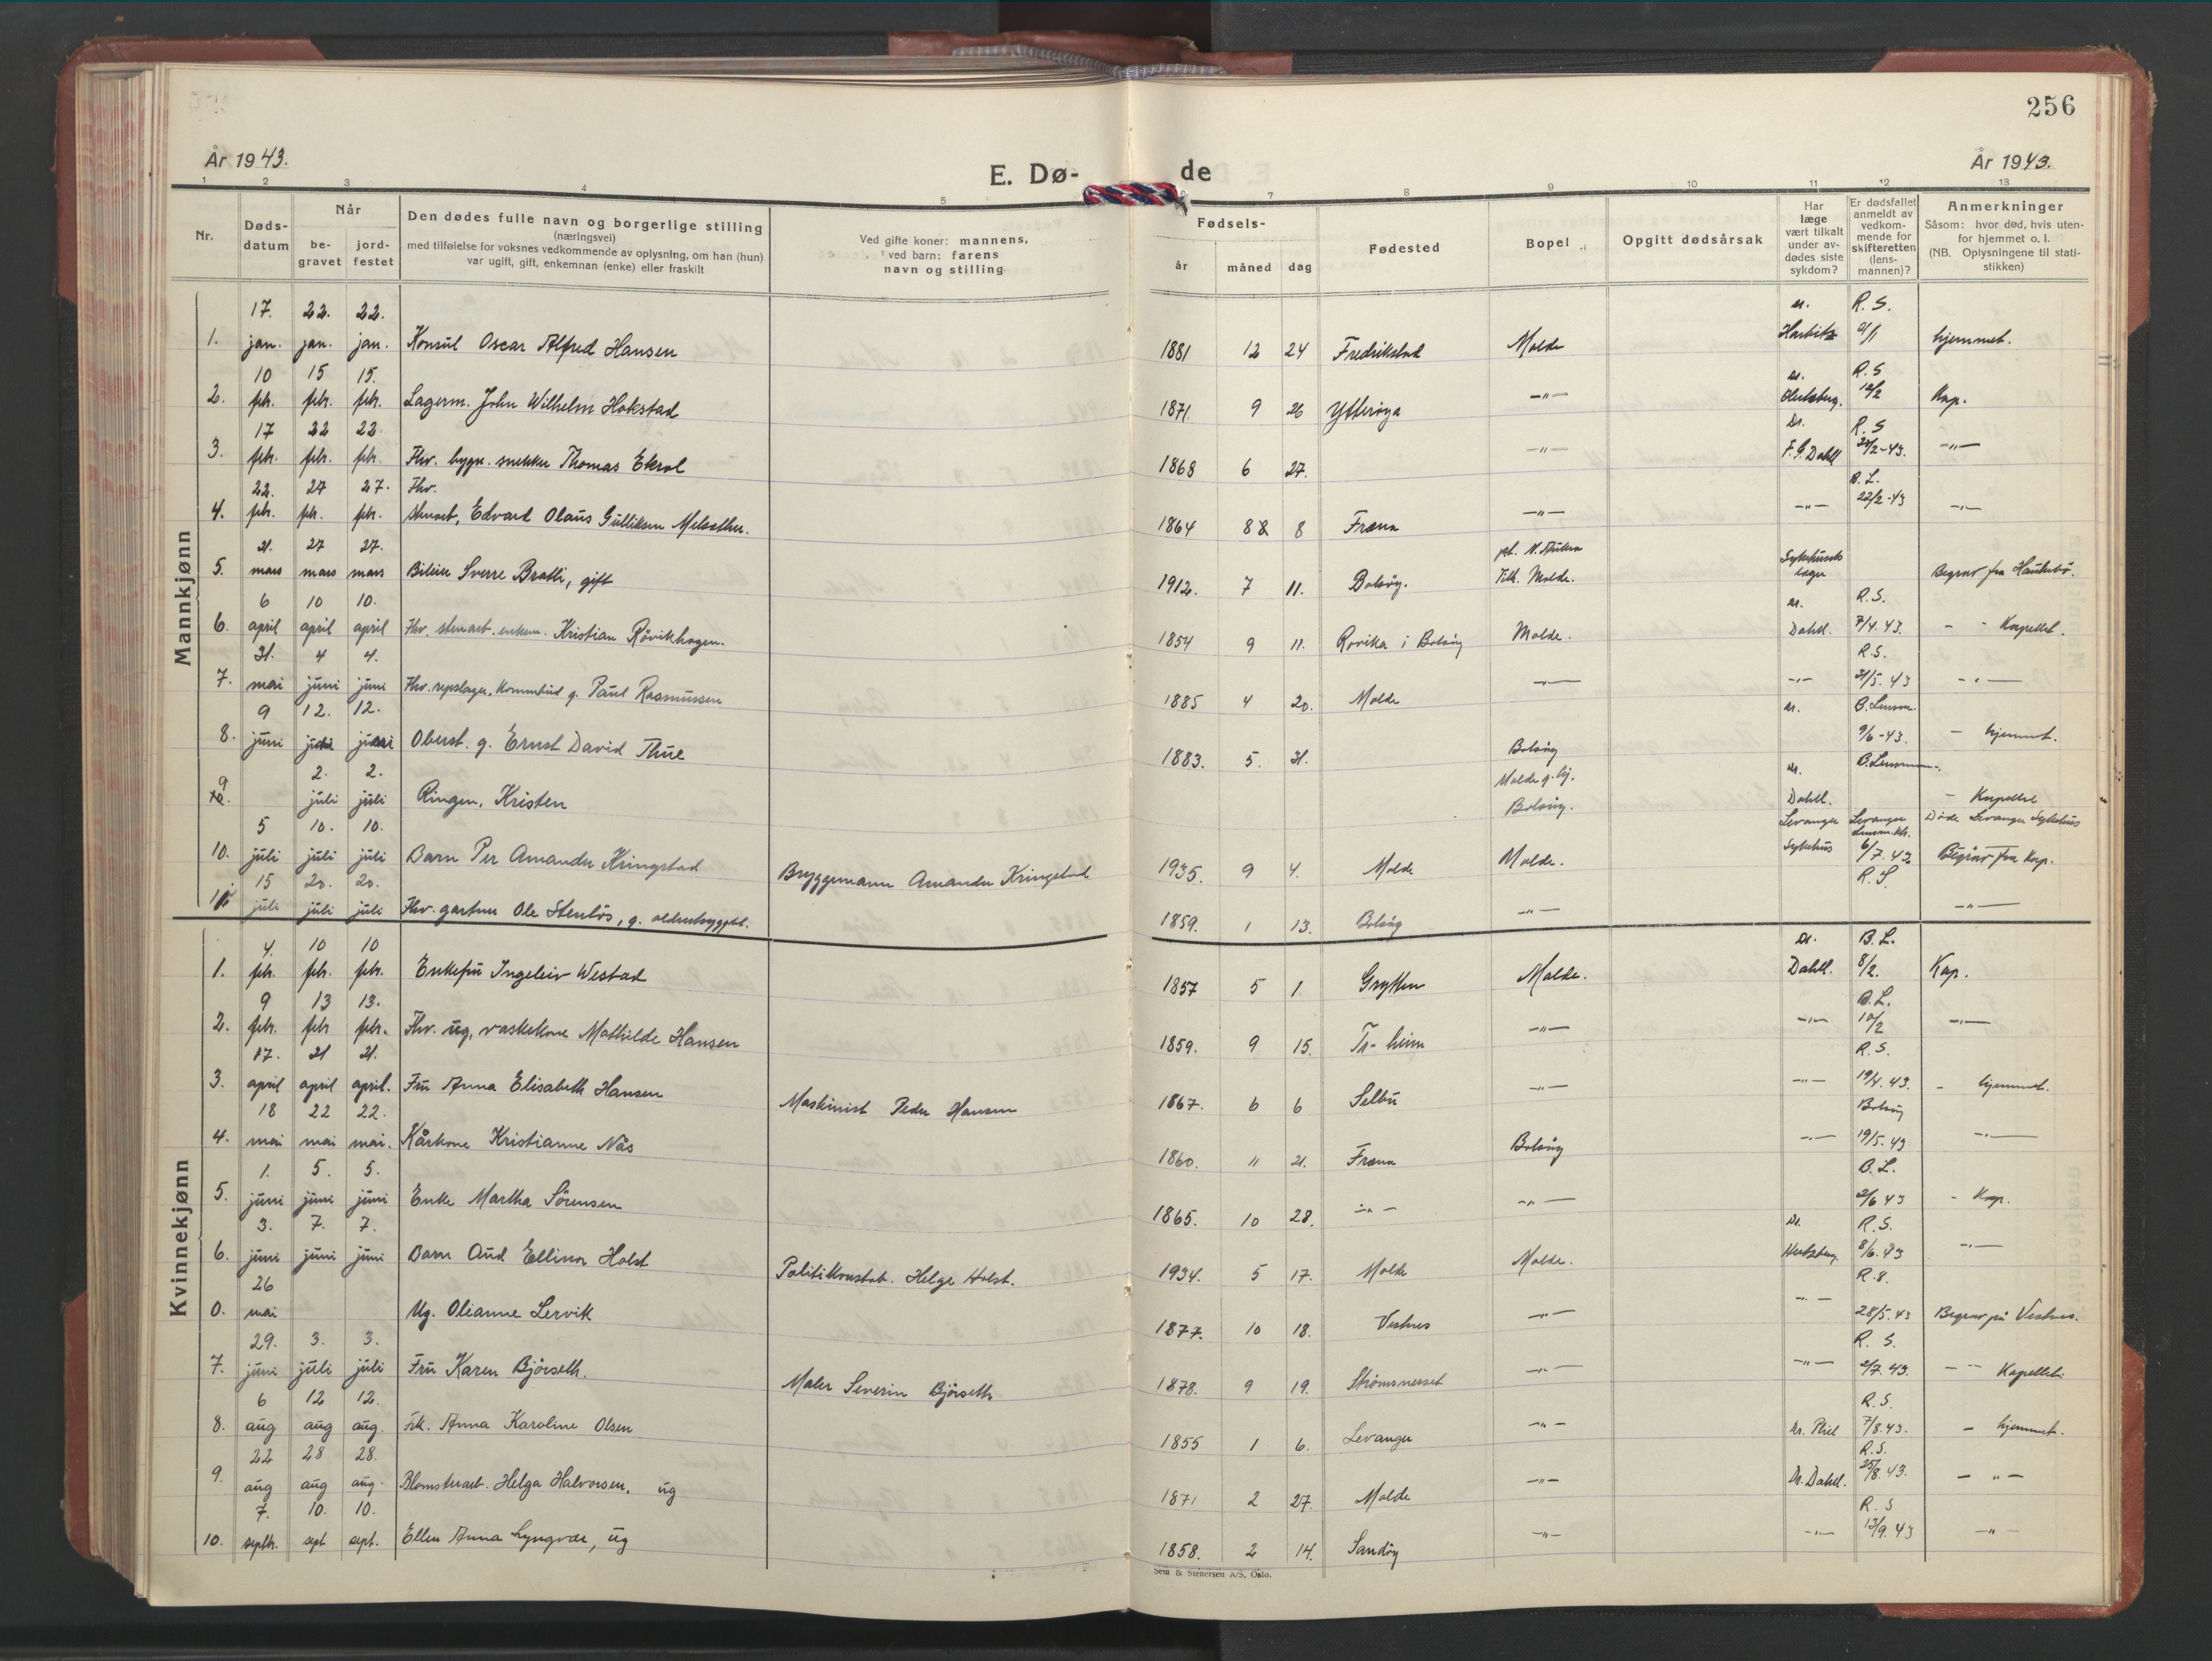 256
År 1943.
E. Dø-de
År 1943.
1 2 3 4 5 7 8 9 10 11 12 13
Nr.
Døds-datum
Når
be-gravet
jord-festet
Den dødes fulle navn og borgerlige stilling
(næringsvei)
med tilføielse for voksnes vedkommende av oplysning, om han (hun)
var ugift, gift, enkemnan (enke) eller fraskilt
Ved gifte koner: mannens,
ved barn: farens
navn og stilling
Fødsels-
år måned dag
Fødested
Bopel
Opgitt dødsårsak
Har læge vært tilkalt under av-dødes siste sykdom?
Er dødsfallet anmeldt av vedkom-mende for skifteretten (lens-mannen)?
Anmerkninger
Såsom: hvor død, hvis uten-for hjemmet o. l.
(NB. Oplysningene til stati-stikken)
Mannkjønn
1. 17. jan. 22. jan. 22. jan. Konsul Oscar Alfred Hansen 1881 12 24 Fredrikstad Molde dr. Harbitz R. S. hjemmet.
2. 10 feb. 15 feb. 15. feb. Lagerm. John Wilhelm Hokstad 1871. 9 26 Ytterøya -"- dr. R. S 12/2 Kap.
3. 17 feb. 22 feb. 22. feb. Fhv. bygn. snekker Thomas Ekrol 1868 6 27. -"- Dr. F. G. Dahll R. S 22/2-43. -"-
4. 22. feb. 27 feb. 27. feb. Fhv. stenarb. Edvard Olaus Gulliksen Melsether. 1864 8 8 Fræna -"- -"- B. L. 22/2-43 -"-
5. 21. mars 27 mars 27. mars Bileier Sverre Bratli, gift 1912. 7 11. Bolsøy. pt. N. Aukra Tilh. Molde. Sykehusets læge Begrav fra Haukebø.
6. 6 april 10 april 10. april Fhv. stenarb. enkem. Kristian Røvikhagen. 1854 9 11. Røvika i Bolsøy Molde. dr. Dahll. R. S. 7/4.43. - " Kapellet.
7. 31. mai 4 juni 4. juni Fhv. repslager, Kommbud g. Paul Rasmussen 1885 4 20. Molde -"- -"- R.S. 31/5.43 -"-
8. 9 juni 12. juni 12. juni Oberst. g. Ernst David Thue 1883. 5. 31. Bolsøy dr. B. Lensm. 9/6-43. - hjemmet.
9. 2. juli 2. juli Ringen, Kristen Molde g. hj. Bolsøy. dr. Dahll. B. Lensmann. - Kapellet
10. 5 juli 10. juli 10. juli Barn Per Amandus Kringstad Bryggemann Amandus Kringstad 1935. 9 4. Molde Molde. Levanger sykehus Levanger Lensm.ktr. 6/7.43 Døde Levanger Sykehus Begrav fra Kap.
11 15 juli 20. juli 20. juli Fhv. gartner Ole Stenløs, g. 1859. 1 13. Bolsøy -"- R. S. -"-
Kvinnekjønn
1. 4. feb. 10 feb. 10 feb. Enkefru Ingeleiv Westad 1857 5 1. Grytten Molde. Dr. Dahll. B. L. 8/2. Kap.
2. 9 feb. 13 feb 13. feb. Fhv. ug, vaskekone Mathilde Hansen 1859. 9 15. Tr-heim -"- -"- B. L. 10/2 -"-
3. 17. april 21 april 21. april. Fru Anna Elisabeth Hansen Maskinist Peder Hansen 1867. 6 6 Selbu -"- -"- R. S. 19/4.43. - hjemmet.
4. 18 mai 22 mai 22. mai. Kårkone Kristianne Nås 1860. 11 21. Fræna Bolsøy -"- Bolsøy 19/5.43 -"-
5. 1. juni 5. juni 5. juni Enke Martha Sørensen 1865. 10 28. -"- -"- B. L. 2/6 43 - Kap.
6. 3. juni 7. juni 7. juni Barn Aud Ellinor Holst Politikonstab. Helge Holst. 1934. 5 17. Molde Molde. Dr. Hertzberg. R. S. 8/6.43 -"-
0. 26 mai Ug. Olianne Lervik 1877. 10 18. Vestnes -"- -"- R. S. 28/5.43 Begrav på Vestnes.
7. 29. juni 3. juli 3. juli Fru Karen Bjørseth. Maler Severin Bjørseth 1878. 9 19. Strømsnesset -"- -"- R. S. 2/7.43. - " Kapellet.
8. 6 aug 12 aug 12. aug. Frk. Anna Karoline Olsen 1855 1 6. Levanger -"- R. S. 7/8.43. - hjemmet.
9. 22 aug 28 aug 28. aug. Blomsterarb. Helga Halvorsen, ug 1871 2 27. Molde -"- Dr. Dahll. R. S. 25/8.43. - " -
10. 7. septbr. 10. sept 10. sept. Ellen Anna Lyngvær, ug 1858. 2 14. Sandøy -"- -"- R. S 13/9.43 -"-
Sem & Stenersen A/S, Oslo.